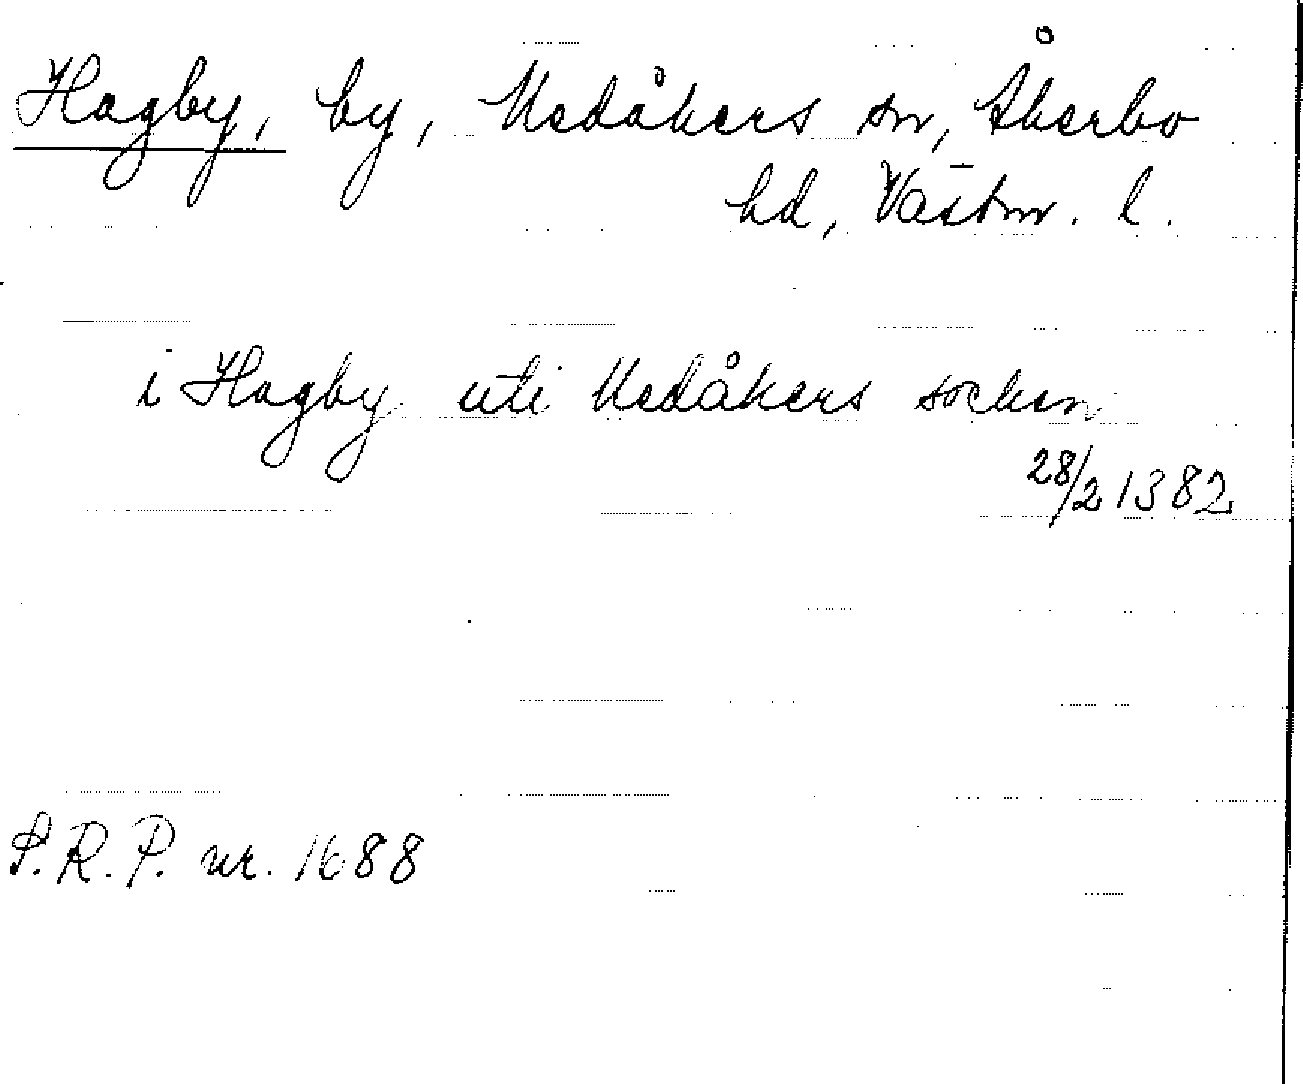 Hagby, by, Medåkers sn, Åkerbo
hd, Västm. l.
i Hagby uti Medåkers socken
28/2 1382
S.R.P. nr. 1688